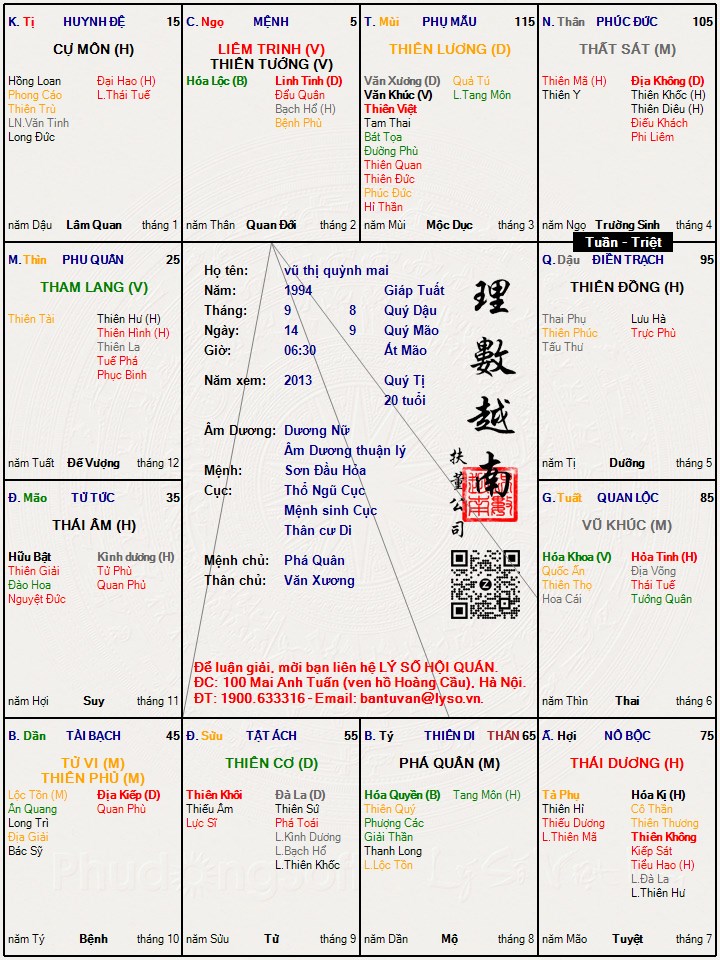 K. Tị HUYNH ĐỆ 15
CỰ MÔN (H)
Hồng Loan Đại Hao (H)
Phong Cáo L.Thái Tuế
Thiên Trù
LN.Văn Tinh
Long Đức
năm Dậu Lâm Quan tháng 1
C. Ngọ MỆNH 5
LIÊM TRINH (V)
THIÊN TƯỚNG (V)
Hóa Lộc (B) Linh Tinh (D)
Đẩu Quân
Bạch Hổ (H)
Bệnh Phù
năm Thân Quan Đới tháng 2
T. Mùi PHỤ MẪU 115
THIÊN LƯƠNG (D)
Văn Xương (D) Quả Tú
Văn Khúc (V) L.Tang Môn
Thiên Việt
Tam Thai
Bát Tọa
Đường Phù
Thiên Quan
Thiên Đức
Phúc Đức
Hỉ Thần
năm Mùi Mộc Dục tháng 3
N. Thân PHÚC ĐỨC 105
THẤT SÁT (M)
Thiên Mã (H) Địa Không (D)
Thiên Y Thiên Khốc (H)
Thiên Diêu (H)
Điếu Khách
Phi Liêm
năm Ngọ Trường Sinh tháng 4
Tuần - Triệt
M. Thìn PHU QUÂN 25
THAM LANG (V)
Thiên Tài Thiên Hư (H)
Thiên Hình (H)
Thiên La
Tuế Phá
Phục Binh
năm Tuất Đế Vượng tháng 12
Họ tên: vũ thị quỳnh mai
Năm: 1994 Giáp Tuất
Tháng: 9 8 Quý Dậu
Ngày: 14 9 Quý Mão
Giờ: 06:30 Ất Mão
Năm xem: 2013 Quý Tị
20 tuổi
Âm Dương: Dương Nữ
Âm Dương thuận lý
Mệnh: Sơn Đầu Hỏa
Cục: Thổ Ngũ Cục
Mệnh sinh Cục
Thân cư Di
Mệnh chủ: Phá Quân
Thân chủ: Văn Xương
理數越南
扶董公司
Để luận giải, mời bạn liên hệ LÝ SỐ HỘI QUÁN.
ĐC: 100 Mai Anh Tuấn (ven hồ Hoàng Cầu), Hà Nội.
ĐT: 1900.633316 - Email: bantuvan@lyso.vn.
Q. Dậu ĐIỀN TRẠCH 95
THIÊN ĐỒNG (H)
Thai Phụ Lưu Hà
Thiên Phúc Trực Phù
Tấu Thư
năm Tị Dưỡng tháng 5
Đ. Mão TỬ TỨC 35
THÁI ÂM (H)
Hữu Bật Kình dương (H)
Thiên Giải Tử Phù
Đào Hoa Quan Phủ
Nguyệt Đức
năm Hợi Suy tháng 11
G. Tuất QUAN LỘC 85
VŨ KHÚC (M)
Hóa Khoa (V) Hỏa Tinh (H)
Quốc Ấn Địa Võng
Thiên Thọ Thái Tuế
Hoa Cái Tướng Quân
năm Thìn Thai tháng 6
B. Dần TÀI BẠCH 45
TỬ VI (M)
THIÊN PHỦ (M)
Lộc Tồn (M) Địa Kiếp (D)
Ân Quang Quan Phù
Long Trì
Địa Giải
Bác Sỹ
năm Tý Bệnh tháng 10
Đ. Sửu TẬT ÁCH 55
THIÊN CƠ (D)
Thiên Khôi Đà La (D)
Thiếu Âm Thiên Sứ
Lực Sĩ Phá Toái
L.Kình Dương
L.Bạch Hổ
L.Thiên Khốc
năm Sửu Tử tháng 9
B. Tý THIÊN DI THÂN 65
PHÁ QUÂN (M)
Hóa Quyền (B) Tang Môn (H)
Thiên Quý
Phượng Các
Giải Thần
Thanh Long
L.Lộc Tồn
năm Dần Mộ tháng 8
Ấ. Hợi NÔ BỘC 75
THÁI DƯƠNG (H)
Tả Phụ Hóa Kị (H)
Thiên Hỉ Cô Thần
Thiếu Dương Thiên Thương
L.Thiên Mã Thiên Không
Kiếp Sát
Tiểu Hao (H)
L.Đà La
L.Thiên Hư
năm Mão Tuyệt tháng 7